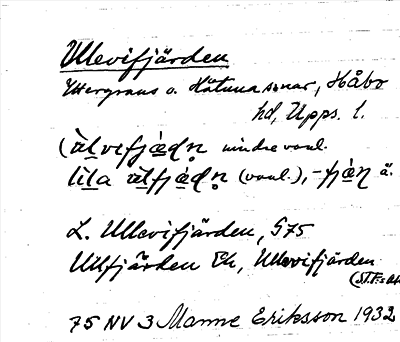 Ullevifjärden
Yttergrans o. Håtuna snar, Håbo
hd, Upps. l.
(ùlvifjædṇ mindre vanl.
lila ùlfjædṇ (vanl.), -fjæṇ ä.
L. Ullevifjärden, G75
Ullfjärden Ek, Ullevifjärden
75 NV 3 Manne Eriksson 1932